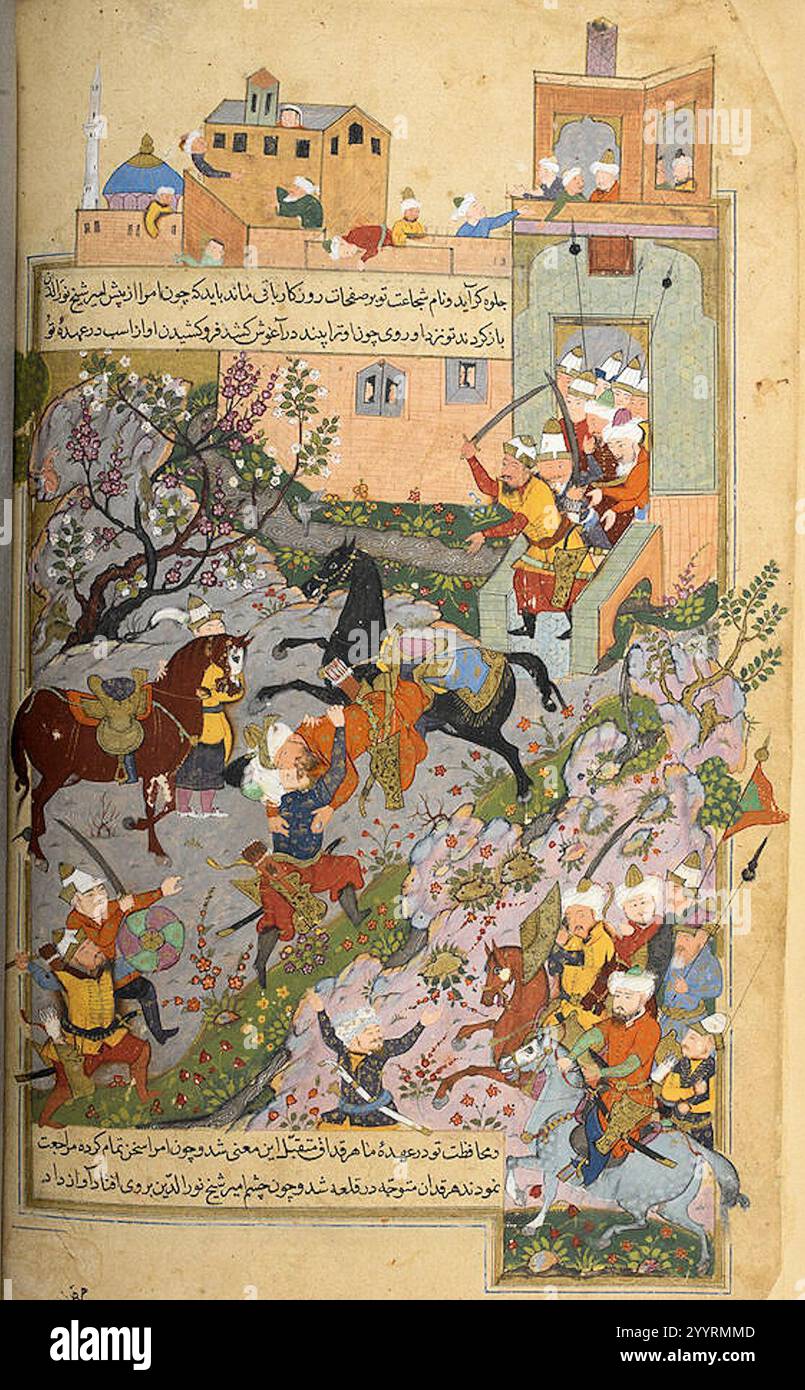 جلوه کرآید ونام شجاعت تو بر صفحات روزکار باقی ماند باید که چون امرا از پیش امیر شیخ نور الدین
باز کردند تو نزد او روی چون او ترا بیند در آغوش کشد فرو کشیدن او از اسب در عهدهٔ تو
ومحافظت تو در عهدهٔ ما هرقداق متقبل این معنی شد و چون امرا سخن تمام کرده مراجعت
نمودند هرقداق متوجه در قلعه شد و چون چشم امیر شیخ نور الدین بر وی افتاد آواز داد
alamy
alamy
Image ID: 2YYRMMD
www.alamy.com